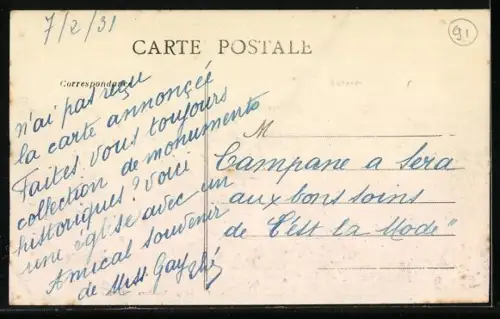 7/2/31
91
CARTE POSTALE
Correspondance
n'ai pas reçu
la carte annonçée
Faites vous toujours
collection de monuments
historiques? Voici
une église avec un
Amical souvenir
de Miss Gay
M
Campane a Sera
aux bons soins
de "C'est la Mode"